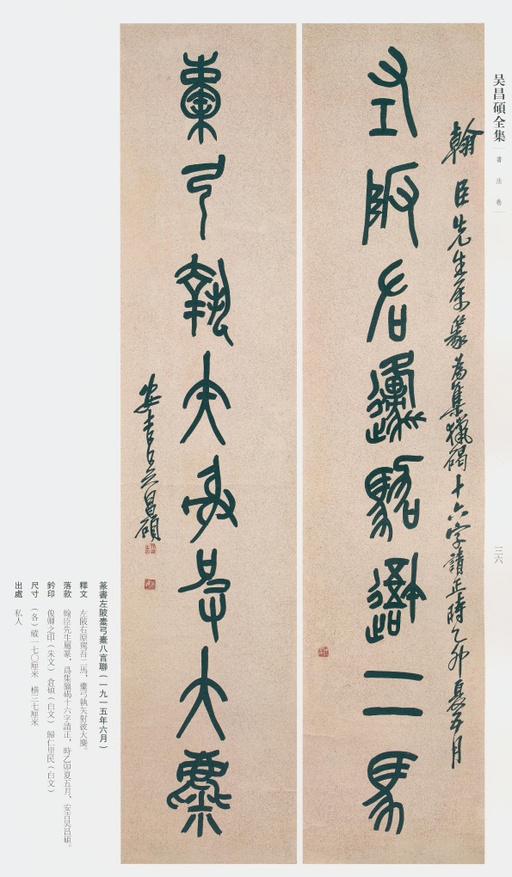 吴昌碩全集
書法卷
三六
翰臣先生屬篆為集獵碣十六字請正時乙卯夏五月
左陂右邍駕㯱二馬
櫜弓執矢射彼大麋
安吉吳昌碩
篆書左陂櫜弓聯八言聯（一九一五年六月）
釋文　左陂右原駕吾二馬，櫜弓執矢射彼大麋。
落款　翰臣先生屬篆，爲集獵碣十六字請正，時乙卯夏五月，安吉吳昌碩。
鈐印　俊卿之印（朱文）　倉碩（白文）　歸仁里民（白文）
尺寸　（各）縱一七〇厘米　橫三七厘米
出處　私人